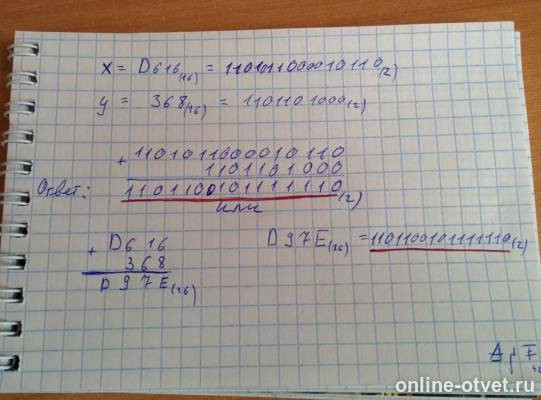 x = D616(16) = 1101011000010110(2)
y = 368(16) = 1101101000(2)
+ 1101011000010110
1101101000
Ответ: 1101100101111110(2)
или
+ D616
368
D97E(16)
D97E(16) = 1101100101111110(2)
online-otvet.ru